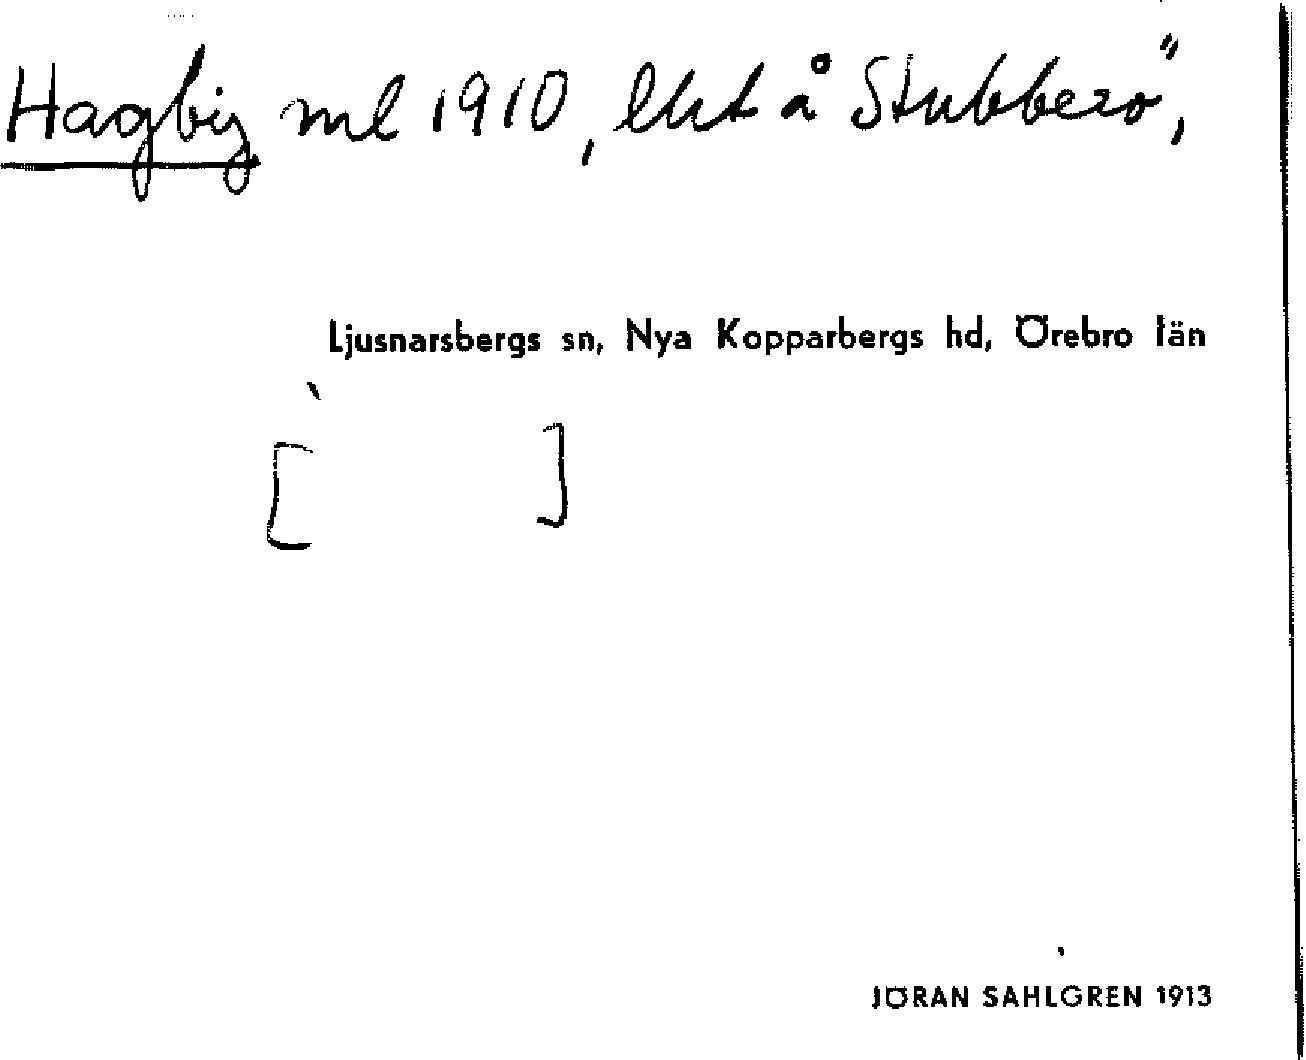 Hagby ml 1910, lht å Stubberö,
Ljusnarsbergs sn, Nya Kopparbergs hd, Örebro län
[ ]
JÖRAN SAHLGREN 1913